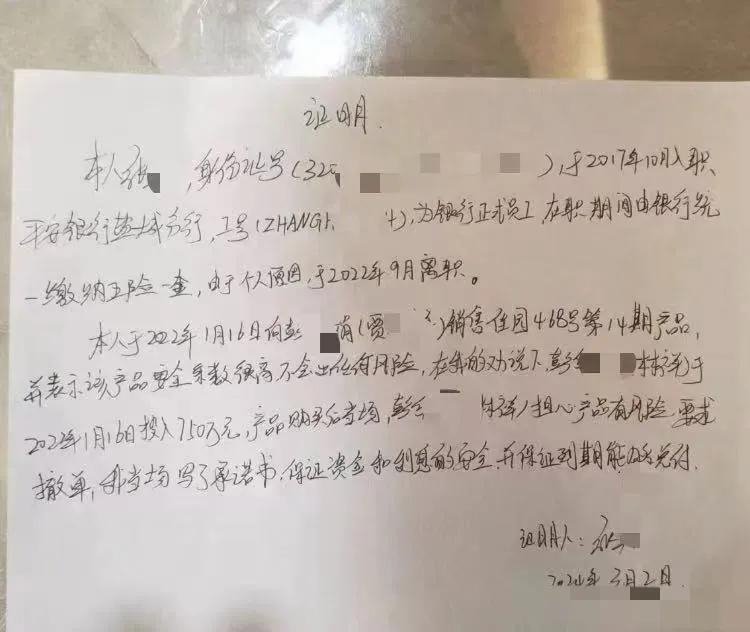 证明
本人张，身份证号(320)，于2017年10月入职
平安银行盐城分行，工号(ZHANG)，为银行正式员工，在职期间由银行统
一缴纳五险一金，由于个人原因，于2022年9月离职。
本人于2022年1月16日向彭(贾)销售佳园468号第14期产品，
并表示该产品安全系数很高不会出任何风险，在我的劝说下，彭于
2022年1月16日投入750万元，产品购买后当场，彭担心产品有风险，要求
撤单，我当场写了承诺书，保证资金和利息的安全，并保证到期能兑付.
证明人：张
3月2日.